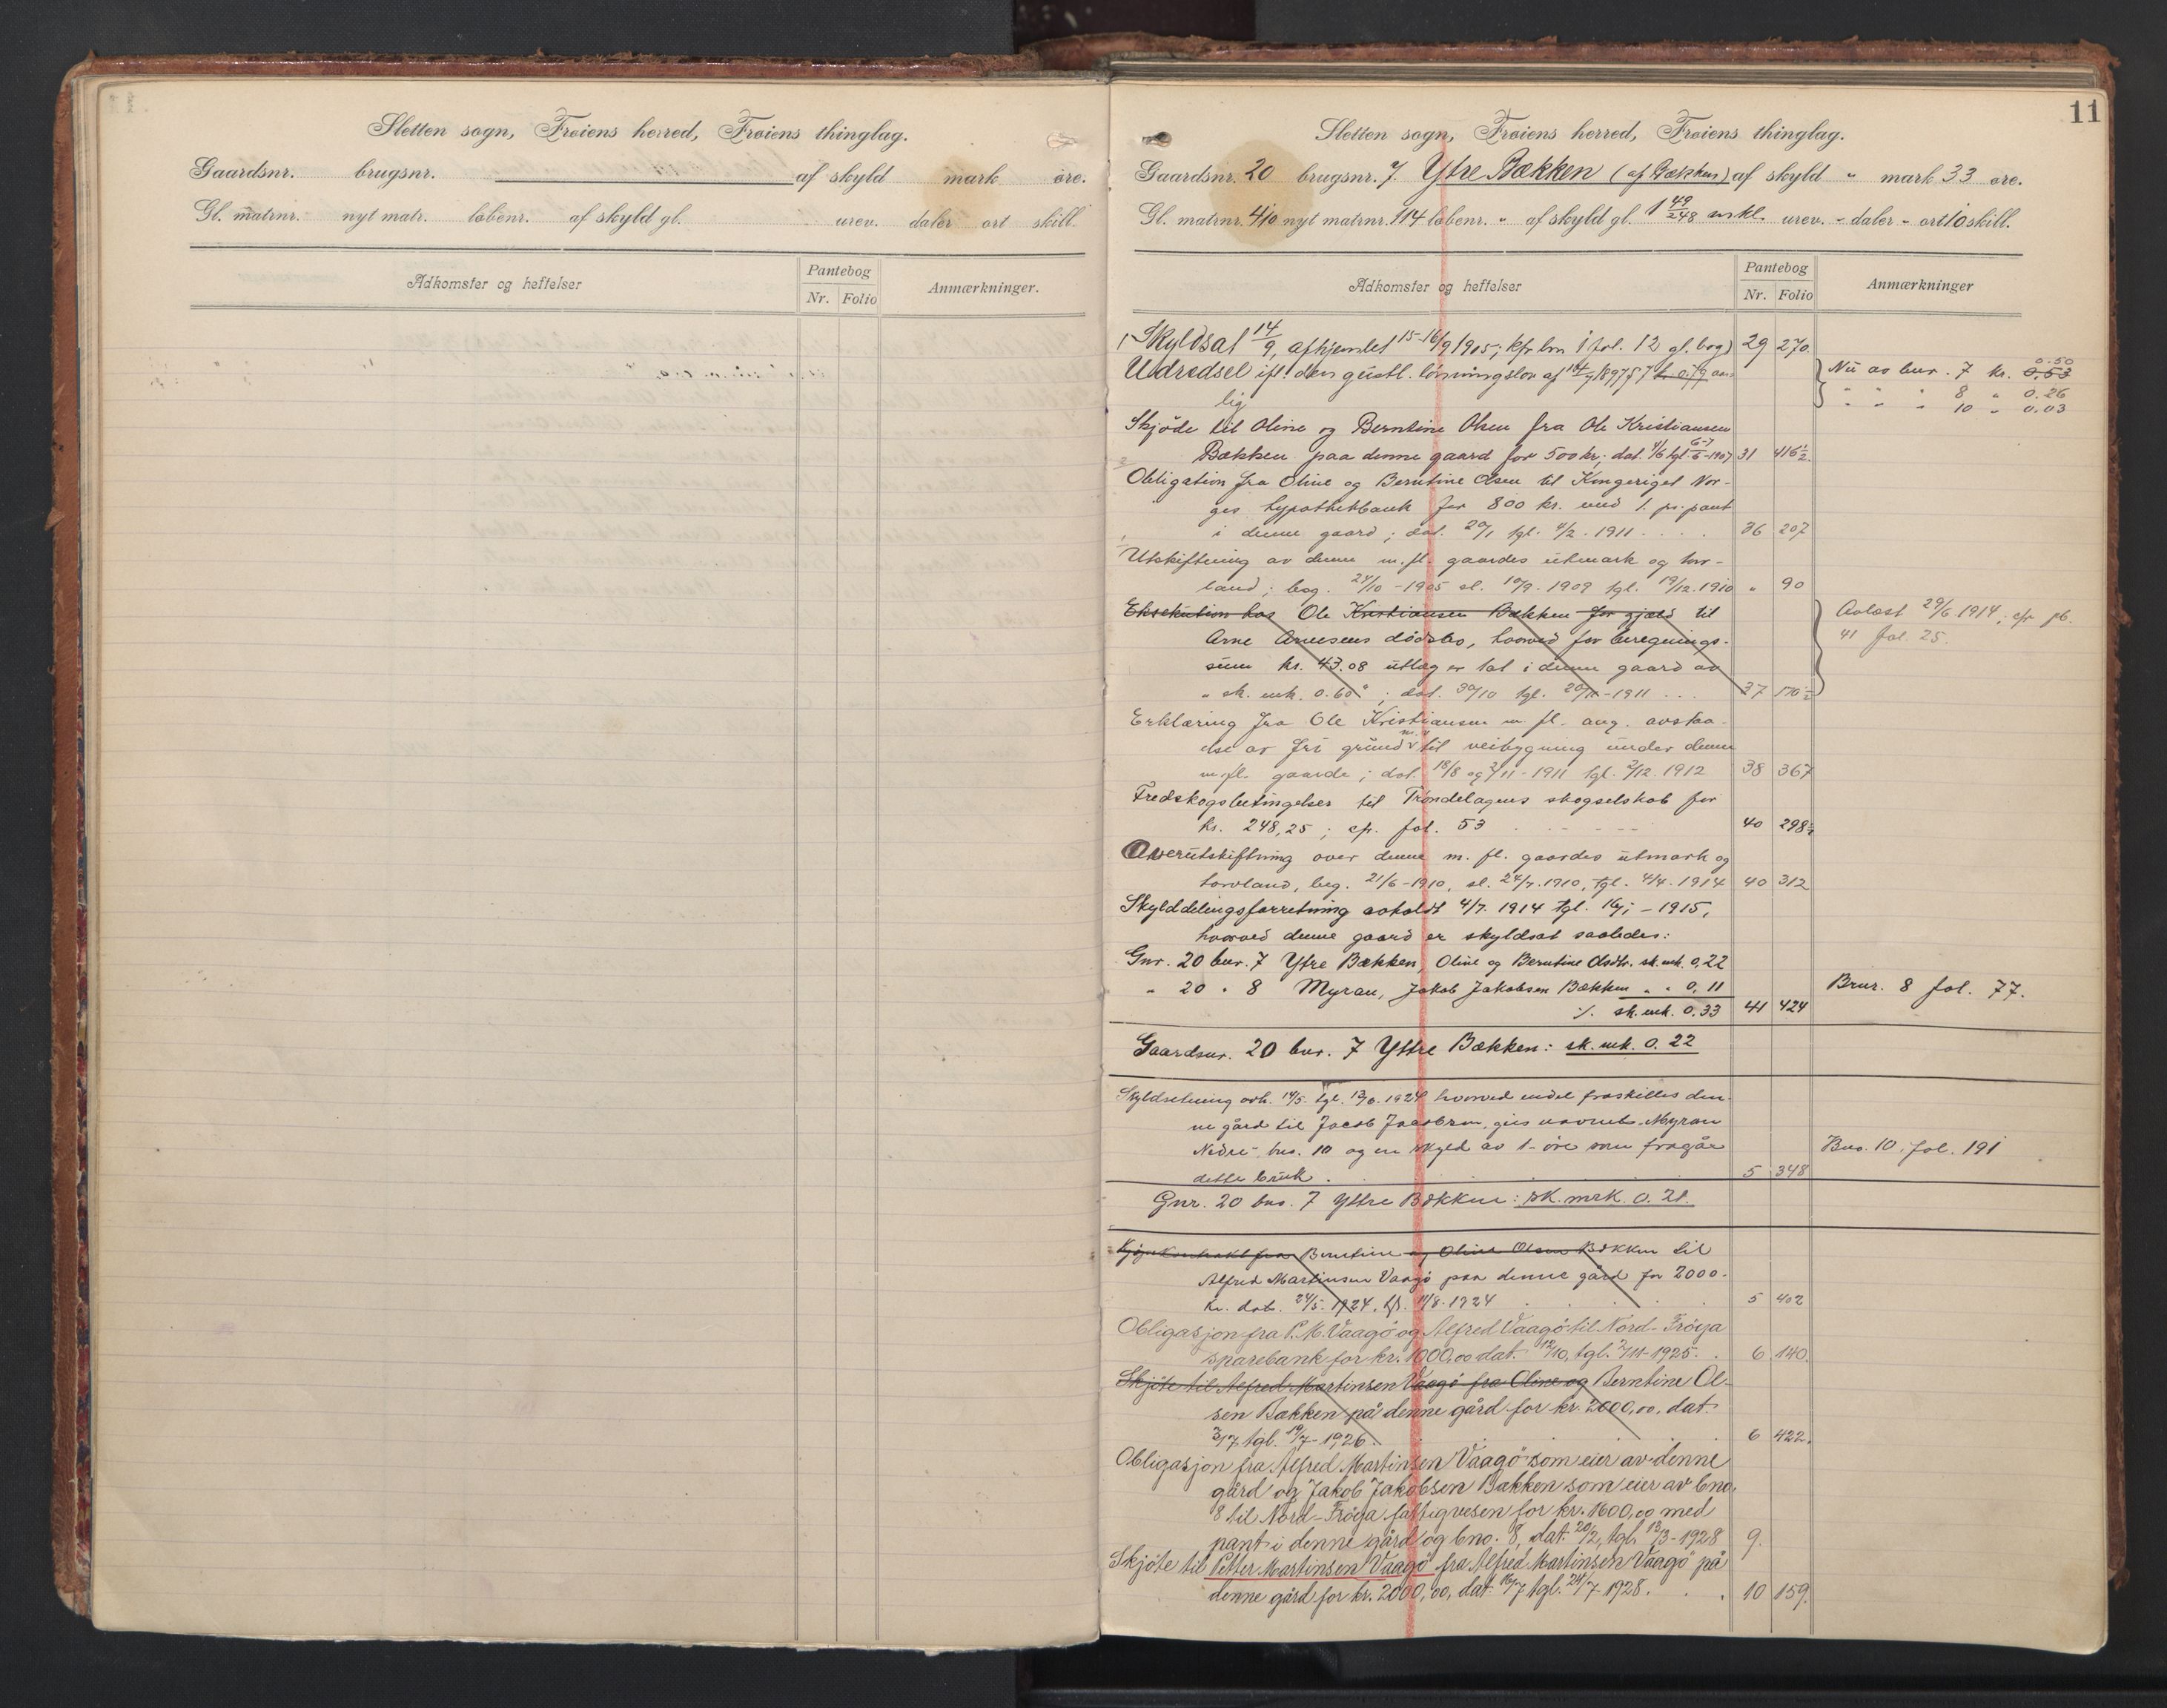 Sletten sogn, Frøiens herred, Frøiens thinglag.
Gaardsnr. brugsnr. af skyld mark øre.
Gl. matrnr. nyt matr. løbenr. af skyld gl. urev. daler ort skill.
Adkomster og heftelser
Pantebog
Nr. Folio
Anmærkninger.
11
Sletten sogn, Frøiens herred, Frøiens thinglag.
Gaardsnr. 20 brugsnr. 7. Ytre Bækken (af Bækken) af skyld " mark 33 øre.
Gl. matrnr. 410 nyt matrnr. 114 løbenr. " af skyld gl. 1 49/248 mkl. urev. - daler - ort 10 skill.
Adkomster og heftelser
Pantebog
Nr. Folio
Anmærkninger
Skyldsat 14/9, afhjemlet 15-16/9 1905; kfr bn 1 fol. 12 gl. bog) 29 270.
Udredsel ifl. den geistl. lønningslov af 14/7 1897 § 7 aar- Nu av bnr. 7 kr. 0.53 0.50
lig " " " 8 " 0.26
" " " 10 " 0.03
Skjøde til Oline og Berntine Olsen fra Ole Kristiansen
Bækken paa denne gaard for 500 kr; dat. 4/6 tgl. 6-7/6-1907 31 416½.
Obligation fra Oline og Berntine Olsen til Kongeriget Nor-
ges hypothekbank for 800 kr. med 1. pr. pant
i denne gaard; dat. 20/1 tgl. 4/2. 1911 . . . . 36 207
Utskiftning av denne m. fl. gaardes utmark og torv-
land; beg. 24/10 - 1905 sl. 10/9. 1909 tgl. 19/12. 1910 " 90
Eksekution hos Ole Kristiansen Bækken for gjæld til Avløst 29/6 1914, cfr pb.
Arne Arnesens dødsbo, hvorved for beregnings- 41 fol. 25.
sum kr. 43.08 utlæg er tat i denne gaard av
" sk. mk. 0.60"; dat. 30/10 tgl. 20/11-1911 . . . 37 170½
Erklæring fra Ole Kristiansen m. fl. ang. avstaa-
else av fri grund m. v. til veibygning under denne
m. fl. gaarde; dat. 18/8 og 2/11 - 1911 tgl. 2/12. 1912 38 367
Fredskogsbetingelser til Trøndelagens skogselskab for
kr. 248,25; cfr. fol. 53 . . . . 40 298½
Overutskiftning over denne m. fl. gaardes utmark og
torvland, beg. 21/6-1910, sl. 24/7. 1910, tgl. 4/4. 1914 40 312
Skylddelingsforretning avholdt 4/7. 1914 tgl. 16/1 - 1915,
hvorved denne gaard er skyldsat saaledes:
Gnr. 20 bnr. 7 Ytre Bækken, Oline og Berntine Olsdtr. sk. mk. 0,22
" 20 " 8 Myran, Jakob Jakobsen Bækken " " 0,11 Brnr. 8 fol. 77.
./. sk. mk. 0.33 41 424
Gaardsnr. 20 bnr. 7 Yttre Bækken: sk. mk. 0.22
Skyldsetning avh. 14/5. tgl. 13/6. 1924 hvorved endel fraskilles den-
ne gård til Jacob Jacobsen, gis navnet "Myran
Nedre" bno. 10 og en skyld av 1 øre som fragår Bno. 10 fol. 191
dette bruk . . . 5 348
Gnr. 20 bno. 7 Yttre Bækken: sk. mrk. 0.21.
Kjøpekontrakt fra Berntine og Oline Olsen Bækken til
Alfred Martinsen Vaagø paa denne gård for 2000.-
kr. dat. 24/5. 1924. tgl. 11/8. 1924 . . . . 5 402
Obligasjon fra P. M. Vaagø og Alfred Vaagø til Nord-Frøya
sparebank for kr. 1000,00 dat. 12/10, tgl. 2/11-1925. . 6 140.
Skjøte til Alfred Martinsen Vaagø fra Oline og Berntine Ol-
sen Bækken på denne gård for kr. 2000,00, dat.
3/7 tgl. 19/7-1926. . . . . 6 422.
Obligasjon fra Alfred Martinsen Vaagø som eier av denne
gård og Jakob Jakobsen Bækken som eier av bno.
8 til Nord-Frøya fattigvesen for kr. 1600,00 med
pant i denne gård og bno. 8, dat. 20/2, tgl. 13/3-1928 9.
Skjøte til Petter Martinsen Vaagø fra Alfred Martinsen Vaagø på
denne gård for kr. 2000,00, dat. 16/7 tgl. 24/7-1928. . . 10 159.